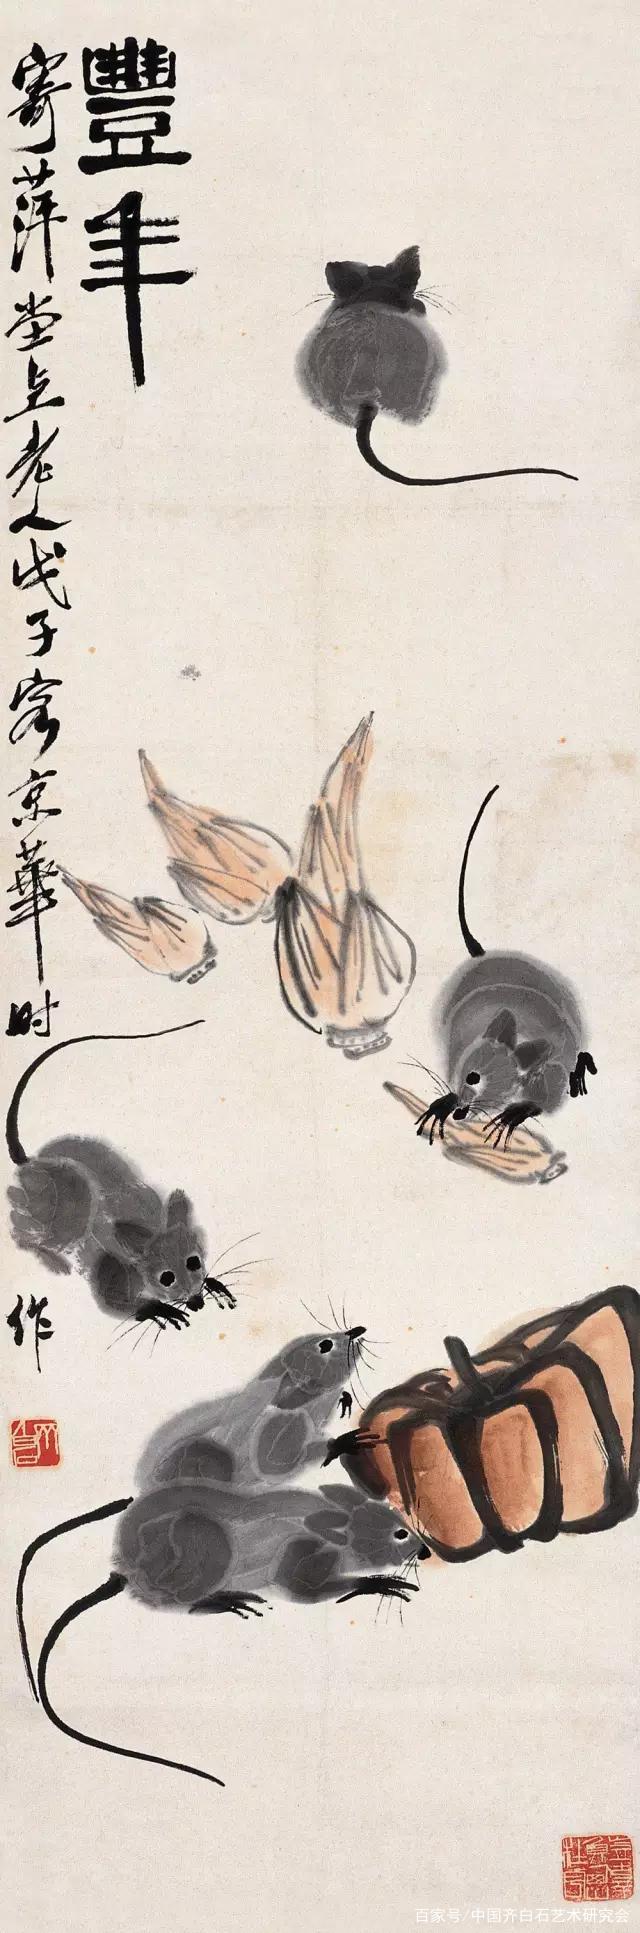 豐年
寄萍堂上老人戊子客京華时作
百家号/中国齐白石艺术研究会